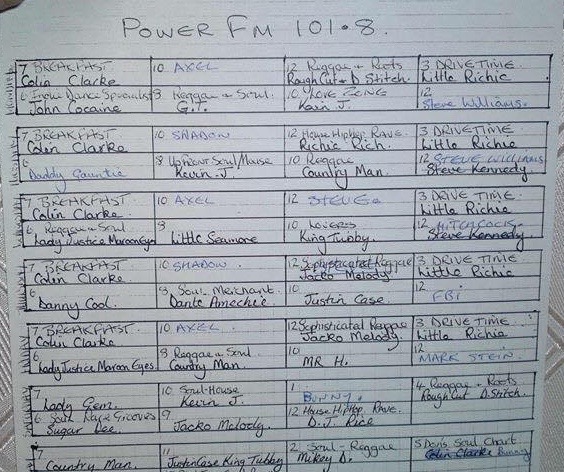 POWER FM 101.8.
7 BREAKFAST. 10 AXEL 12 Reggae + Roots 3 DRIVE TIME
Colin Clarke Rough Cut + D. Stitch. Little Richie
6 Irowe Dance Specialist 8 Reggae + Soul. 10 LOVE ZONE 12
John Cocaine G.T. Kevin J. Steve Williams.
7 BREAKFAST. 10 SHADOW 12 House HipHop Rave. 3 DRIVE TIME
Colin Clarke Richie Rich. Little Richie
6 8 Upfront Soul/ 10 Reggae 12 STEVE WILLIAMS
Daddy Kevin. J Country Man. Steve Kennedy.
7 BREAKFAST. 10 AXEL 12 STEVE. 3 DRIVE TIME
Colin Clarke Little Richie
6 Reggae + Soul 8 10 LOVERS 12 HITCHCOCK
Lady Justice Maroon Eyes Little Seamore King Tubby Steve Kennedy
7 BREAKFAST. 10 SHADOW. 12 Sophisticated Reggae 3 DRIVE TIME
Colin Clarke Jacko Melody. Little Richie
6 8 Soul Merchant. 10 12
Danny Cool. Dante Justin Case FBi
7 BREAKFAST. 10 AXEL. 12 Sophisticated Reggae 3 DRIVE TIME
Colin Clarke Jacko Melody. Little Richie
6 8 Reggae + Soul 10 12
Lady Justice Maroon Eyes. Country Man. MR H. MARK STEIN.
7 10 Soul-House 1 BUNNY. 4 Reggae + Roots
Lady Gem. Kevin J. Rough Cut D. Stitch.
6 Soul Rare Grooves 9 12 House HipHop RAVE.
Sugar Dee. Jacko Melody. D.J. Rice
7 11 2 Soul - Reggae 5 Soul Chart
Country Man. Justin Case King Tubby Mikey D. Colin Clarke Bunny